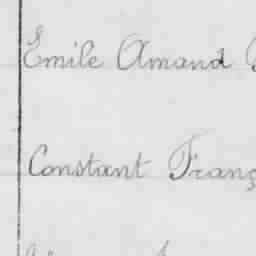 Émile Amand
Constant Franç